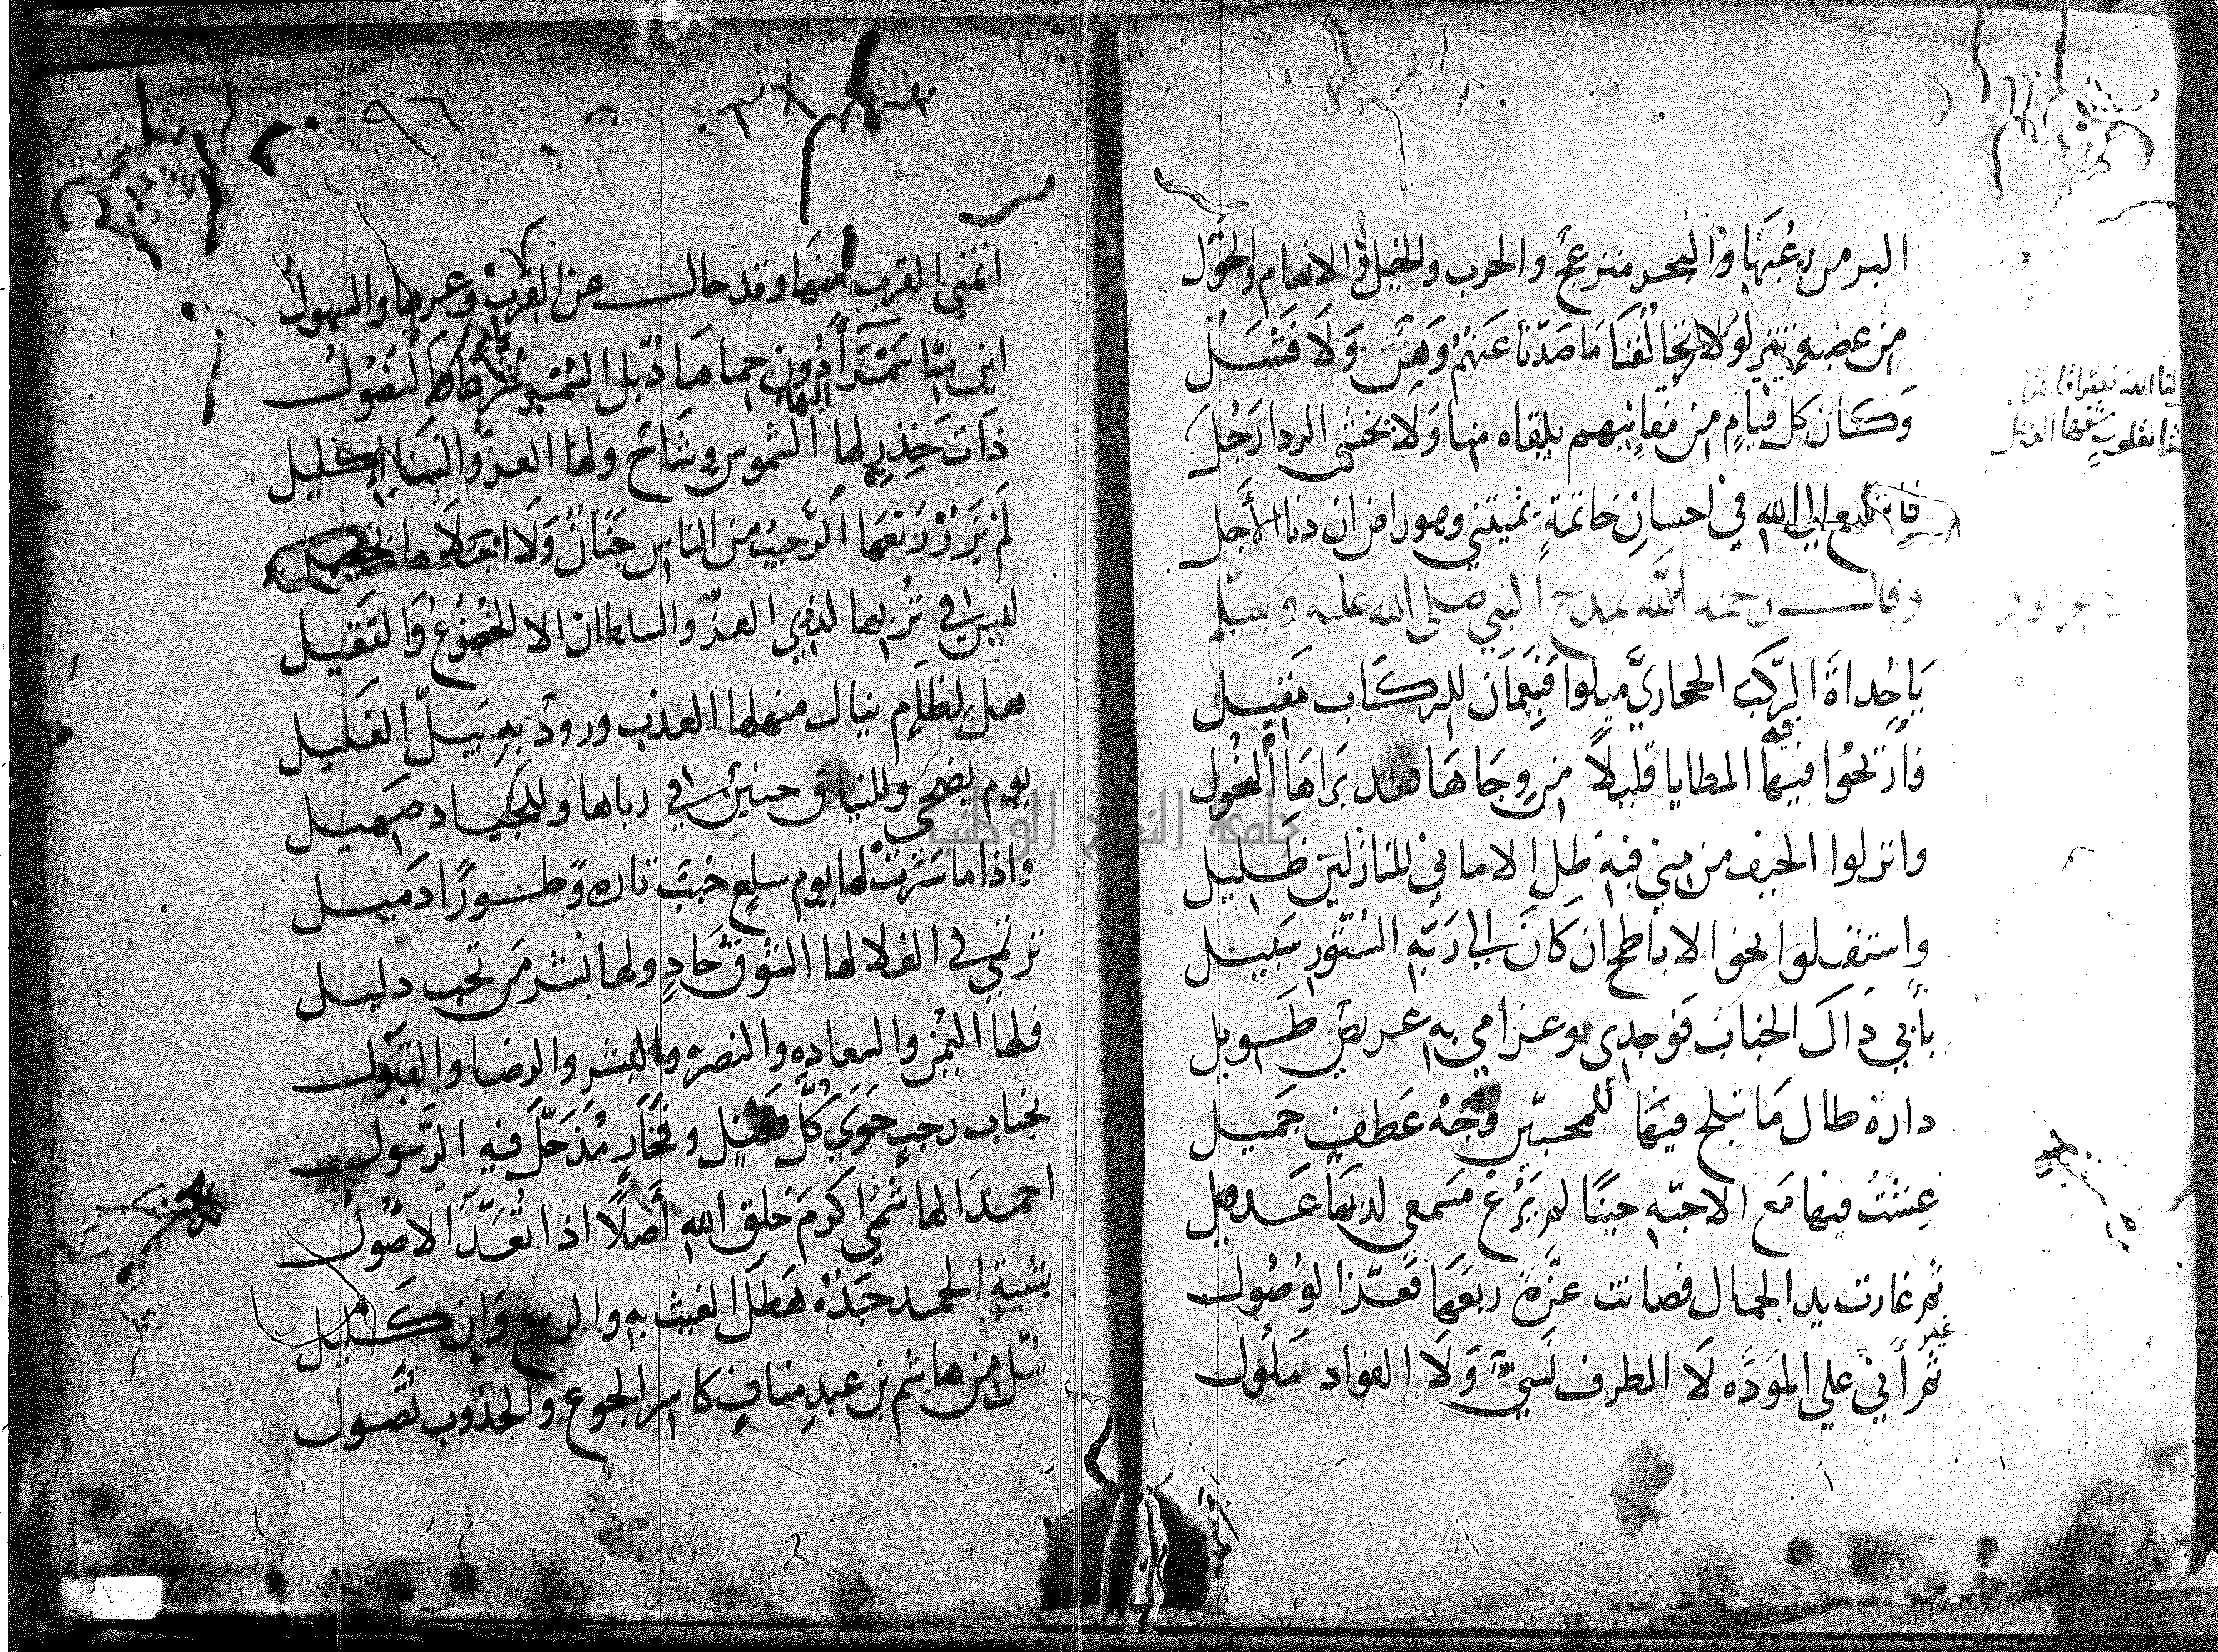 البر من رعبها والبحر منزعج والحرب والخيل والانعام والخول
من عصبة لولا تخالفنا ما صدنا عنهم وهن ولا فشل
وكان كل فيام من مقانبهم يلقاه منها ولا يخشى الردا رجل
الى الله في احسان خاتمة تميتني وهو راض ان دنا الأجل
وقال رحمه الله يمدح النبي صلى الله عليه وسلم
يا حداة الركب الحجازي ميلوا فبنعمان للركاب مقيل
وأرتحوا فيها المطايا قليلا من وجاها فقد براها النحول
وانزلوا الخيف من منى فبه ظل الاماني للنازلين ظليل
واستقلوا نحو الاباطح ان كان الى ربه الستور سبيل
بأبي ذاك الجناب فوجدي وغرامي به عريض طويل
دارة طال ما تبلج فيها للمحبين وجه عطف جميل
عشت فيها مع الاحبه حينا لم يرع مسمعي لديها عذول
ثم غارت يد الجمال فصانت عزة ربعها فعز الوصول
غير
أني على الموده لا الطرف نسي ولا الفواد ملول
لنا الله
القلوب
٩٦
اتمنى القرب منها وقد حال عن القرب وعرها والسهول
اين منا سمرا دون حماها ذبل السمر والنصول
اليها
ذات خدر لها الشموس وشاح ولها العز والسنا اكليل
لم يزر ربعها الرحيب من الناس جنان ولا اجتلاها
ليس في تربها لذي العز والسلطان الا الخضوع والتقبيل
هل لظام ينال منهلها العذب ورود به يبل الغليل
يوم يضحي وللنياق حنين في رباها وللجياد صهيل
واذا ما سرت لها يوم سلع خبب تاره وطورا ذميل
ترتمي في الفلا لها الشوق حاد ولها نشر من تحب دليل
فلها اليمن والسعاده والنصره والبشر والرضا والقبول
بجناب رحب حوى كل فضل وفخار مذ حل فيه الرسول
احمد الهاشمي اكرم خلق الله أصلا اذا تعد الاصول
شيبة الحمد جده هطل الغيث به والربيع وان كليل
نسل من هاشم بن عبد مناف كاسر الجوع والجدوب تصول
جامعة النجاح الوطنية